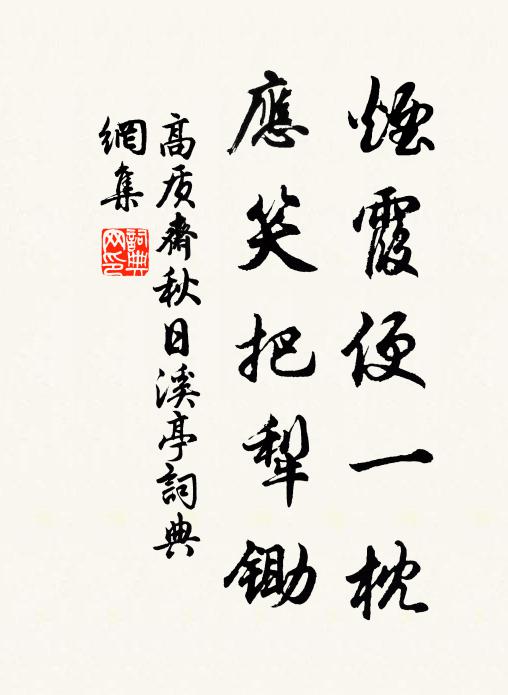 煙霞便一枕
應笑把犁鋤
高质齋秋日溪亭詞典
網集
詞典網印